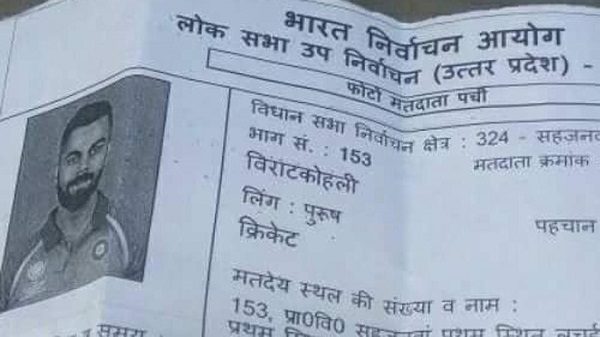 भारत निर्वाचन आयोग
लोक सभा उप निर्वाचन (उत्तर प्रदेश) -
फोटो मतदाता पर्ची
विधान सभा निर्वाचन क्षेत्र : 324 - सहजनवा
भाग सं. : 153
मतदाता क्रमांक
विराटकोहली
लिंग : पुरूष
पहचान
क्रिकेट
मतदेय स्थल की संख्या व नाम :
153, प्रा0वि0 सहजनवां प्रथम स्थित
समय
प्रथम